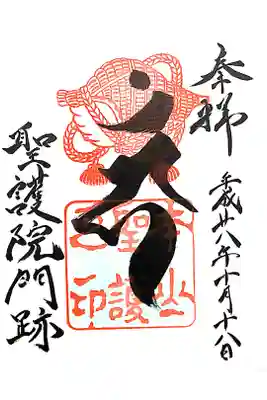 奉拝
平成廿八年十月十八日
本山
聖護
之印
聖護院門跡